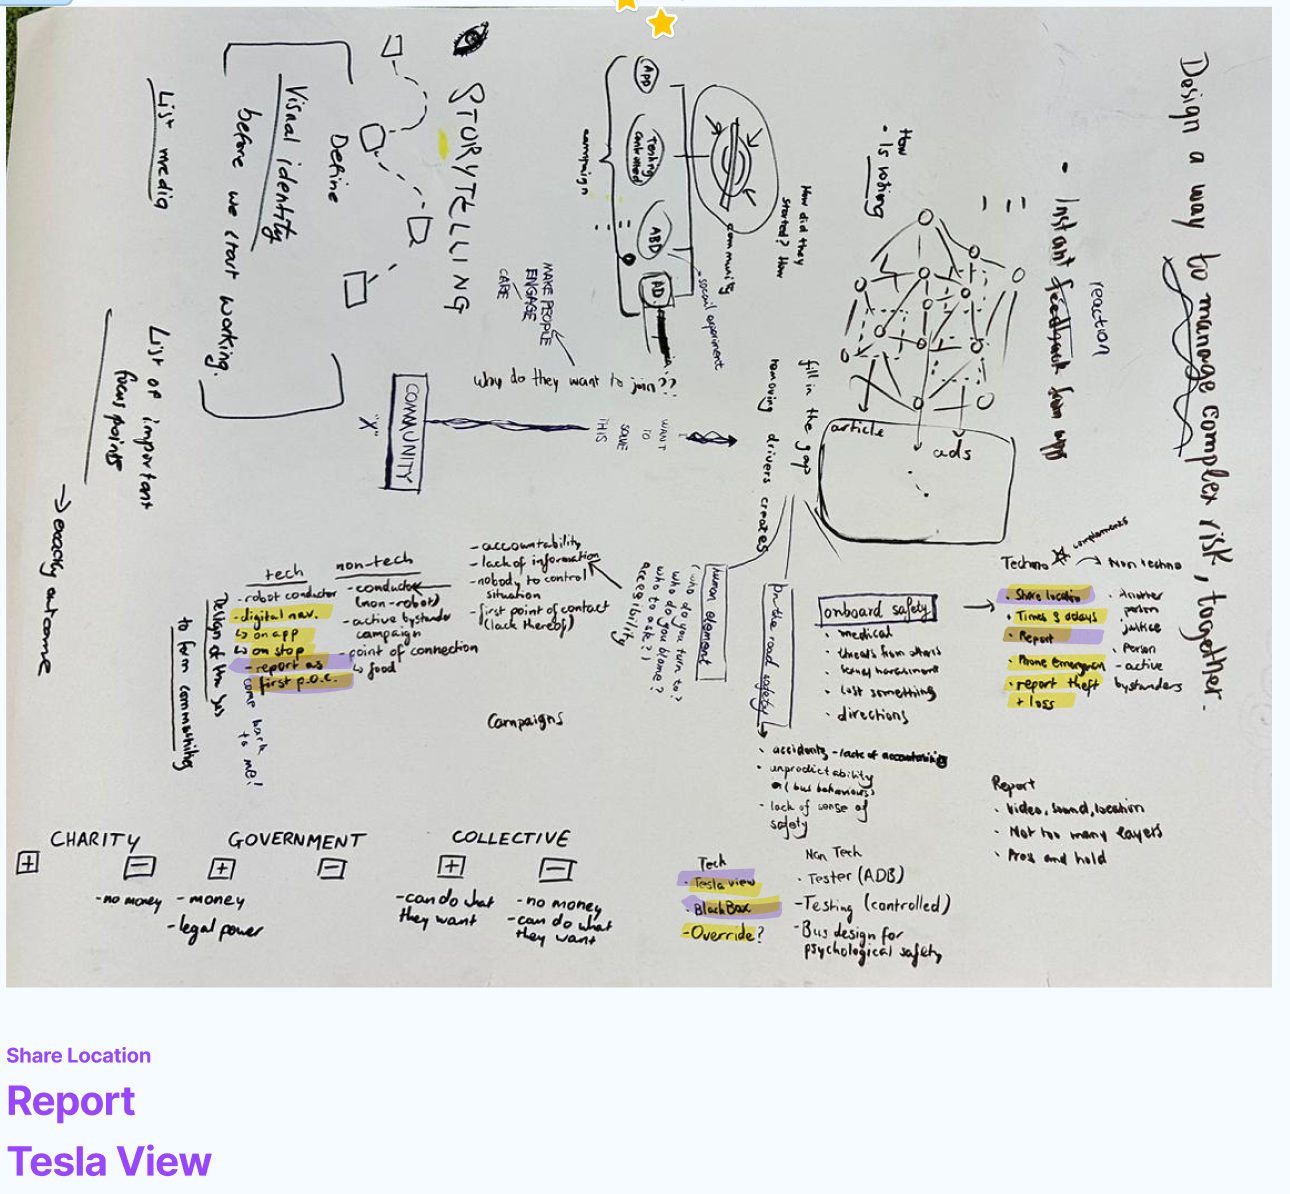 Design a way to manage complex risk, together.
reaction
• Instant feedback from app
How
• Is voting
article
ads
How did they
started? How
community
APP
Testing
controlled
ABD
AD
campaign
STORYTELLING
MAKE PEOPLE
ENGAGE
CARE
Why do they want to join??
COMMUNITY
"X"
WANT
TO
SOLVE
THIS
fill in the gap
removing drivers creates
Define
Visual identity
before we start working.
List media
List of important
focus points
→ exactly outcome
tech
- robot conductor
- digital nav.
↳ on app
↳ on stop
- report as
first p.o.c.
Design of the bus
to form communities
comp back
to me!
non-tech
- conductor
(non-robot)
- active bystander
campaign
- point of connection
↳ food
- accountability
- lack of information
- nobody to control
situation
- first point of contact
(lack thereof)
human element
(who do you turn to?
who do you blame?
who to ask?)
accesibility
Campaigns
On the road safety
• accidents - lack of
• unpredictability
of (bus behaviours)
- lack of sense of
safety
onboard safety
• medical
• threats from others
• sexual harassment
• lost something
• directions
complements
Techno
Non techno
• Share location
• Times & delays
• Report
• Phone emergency
• report theft
+ loss
• Another
person
justice
• Person
- active
bystanders
Report
• Video, sound, location
• Not too many layers
• Press and hold
CHARITY
+
−
- no money
GOVERNMENT
+
−
- money
- legal power
COLLECTIVE
+
−
- can do what
they want
- no money
- can do what
they want
Tech
• Tesla view
• BlackBox
- Override?
Non Tech
• Tester (ADB)
- Testing (controlled)
- Bus design for
psychological safety
Share Location
Report
Tesla View